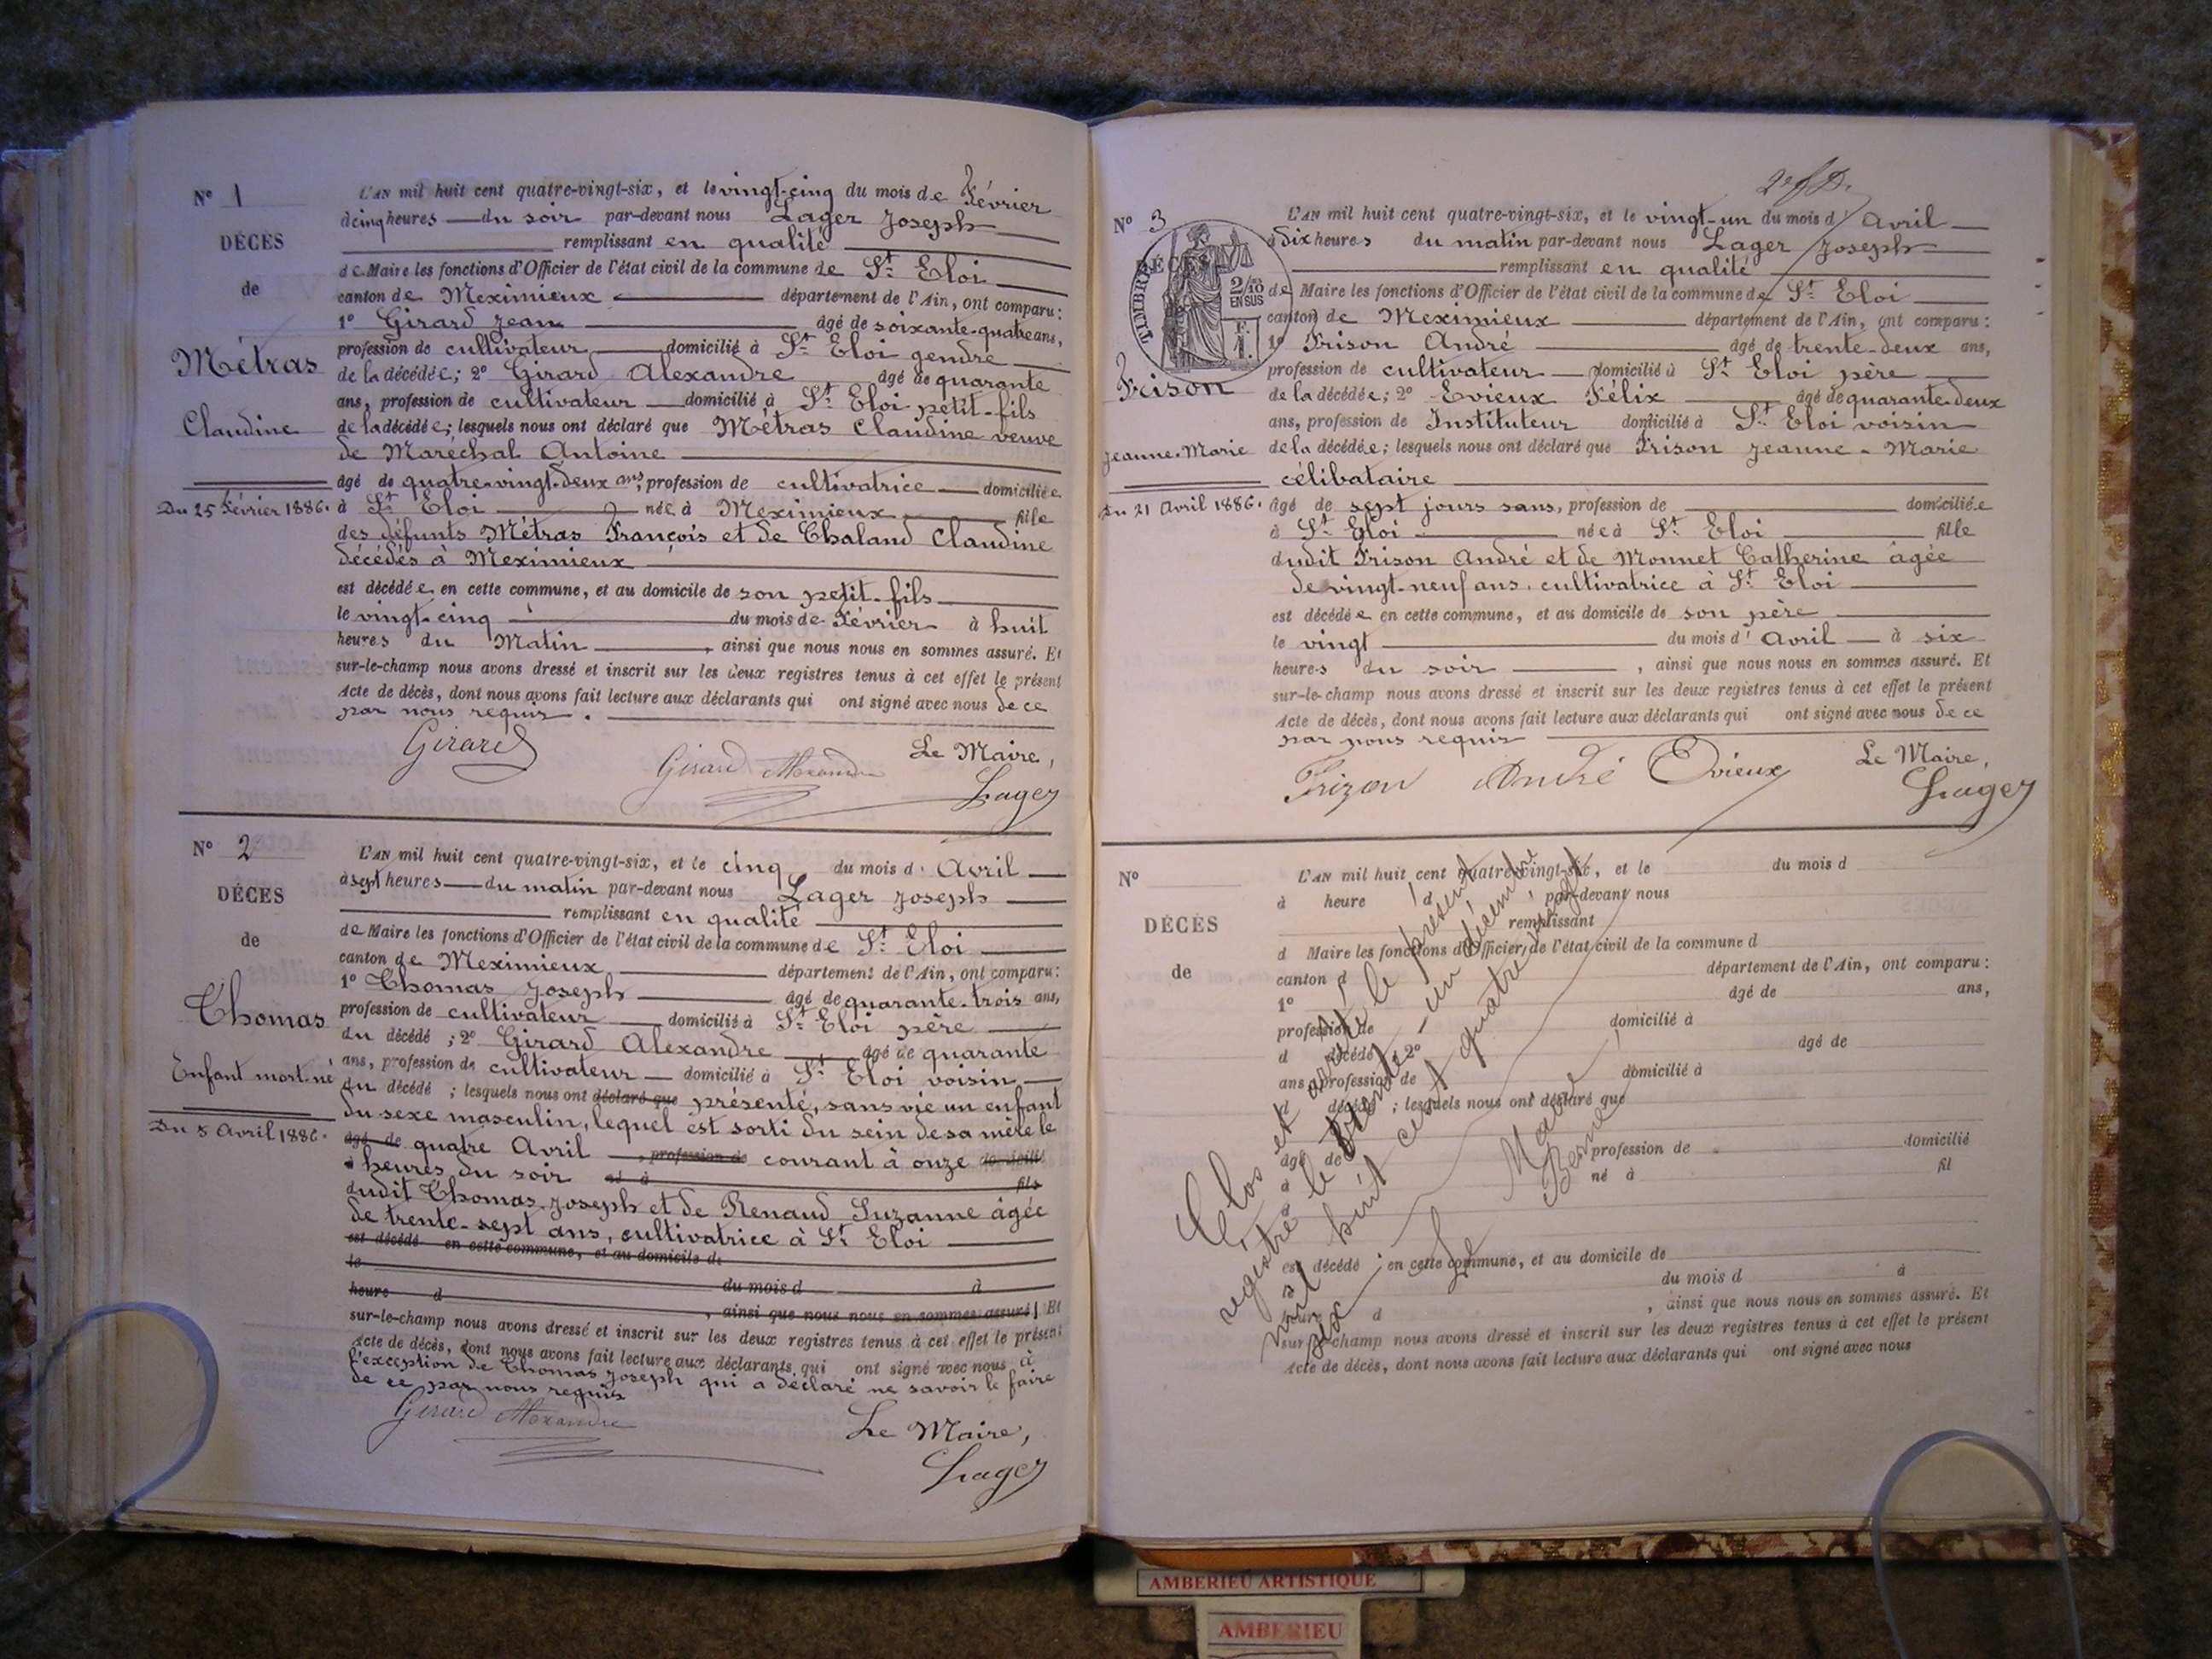 N° 1
DÉCÈS
de
Métras
Claudine
Du 25 Février 1886.
L'AN mil huit cent quatre-vingt-six, et le vingt-cinq du mois de Février
à cinq heures du soir par-devant nous Lager Joseph
remplissant en qualité
de Maire les fonctions d'Officier de l'état civil de la commune de St Eloi
canton de Meximieux département de l'Ain, ont comparu :
1° Girard Jean âgé de soixante-quatre ans,
profession de cultivateur domicilié à St Eloi gendre
de la décédée ; 2° Girard Alexandre âgé de quarante
ans, profession de cultivateur domicilié à St Eloi petit-fils
de la décédée ; lesquels nous ont déclaré que Métras Claudine veuve
de Maréchal Antoine
âgé de quatre-vingt-deux ans, profession de cultivatrice domiciliée
à St Eloi née à Meximieux fille
des défunts Métras François et de Chaland Claudine
décédés à Meximieux
est décédée en cette commune, et au domicile de son petit-fils
le vingt-cinq du mois de Février à huit
heures du Matin, ainsi que nous nous en sommes assuré. Et
sur-le-champ nous avons dressé et inscrit sur les deux registres tenus à cet effet le présent
Acte de décès, dont nous avons fait lecture aux déclarants qui ont signé avec nous de ce
par nous requis.
Girard Girard Alexandre Le Maire,
Lager
N° 2
DÉCES
de
Thomas
Enfant mort-né
Du 5 Avril 1886.
L'AN mil huit cent quatre-vingt-six, et le cinq du mois d' Avril
à sept heures du matin par-devant nous Lager Joseph
remplissant en qualité
de Maire les fonctions d'Officier de l'état civil de la commune de St Eloi
canton de Meximieux département de l'Ain, ont comparu :
1° Thomas Joseph âgé de quarante-trois ans,
profession de cultivateur domicilié à St Eloi père
du décédé ; 2° Girard Alexandre âgé de quarante
ans, profession de cultivateur domicilié à St Eloi voisin
du décédé ; lesquels nous ont déclaré que présenté, sans vie un enfant
du sexe masculin, lequel est sorti du sein de sa mère le
âgé de quatre Avril , profession de courant à onze domicilié
à heures du soir né à fils
dudit Thomas Joseph et de Renaud Suzanne âgée
de trente-sept ans, cultivatrice à St Eloi
est décédé en cette commune, et au domicile de
le
du mois d à
heure d , ainsi que nous nous en sommes assuré. Et
sur-le-champ nous avons dressé et inscrit sur les deux registres tenus à cet effet le présent
Acte de décès, dont nous avons fait lecture aux déclarants qui ont signé avec nous à
l'exception de Thomas Joseph qui a déclaré ne savoir le faire
de ce par nous requis
Girard Alexandre Le Maire,
Lager
N° 3
DÉCÈS
TIMBRE
2/10
EN SUS
F.
1.
Frison
Jeanne-Marie
Du 21 Avril 1886.
L'AN mil huit cent quatre-vingt-six, et le vingt-un du mois d' Avril
à dix heures du matin par-devant nous Lager Joseph
remplissant en qualité
de Maire les fonctions d'Officier de l'état civil de la commune de St Eloi
canton de Meximieux département de l'Ain, ont comparu :
1° Frison André âgé de trente-deux ans,
profession de cultivateur domicilié à St Eloi père
de la décédée ; 2° Evieux Félix âgé de quarante-deux
ans, profession de Instituteur domicilié à St Eloi voisin
de la décédée ; lesquels nous ont déclaré que Frison Jeanne-Marie
célibataire
âgé de sept jours sans, profession de domiciliée
à St Eloi née à St Eloi fille
dudit Frison André et de Monnet Catherine âgée
de vingt-neuf ans, cultivatrice à St Eloi
est décédée en cette commune, et au domicile de son père
le vingt du mois d' Avril à six
heures du soir , ainsi que nous nous en sommes assuré. Et
sur-le-champ nous avons dressé et inscrit sur les deux registres tenus à cet effet le présent
Acte de décès, dont nous avons fait lecture aux déclarants qui ont signé avec nous de ce
par nous requis
Frizon André Evieux Le Maire,
Lager
N°
DÉCÈS
de
L'AN mil huit cent quatre-vingt-six, et le du mois d
à heure d par-devant nous
remplissant
d Maire les fonctions d'Officier de l'état civil de la commune d
canton d département de l'Ain, ont comparu :
1° âgé de ans,
profession de domicilié à
d décédé ; 2° âgé de
ans, profession de domicilié à
d décédé ; lesquels nous ont déclaré que
âgé de profession de domicilié
à né à fil
est décédé en cette commune, et au domicile de
le du mois d à
heure d , ainsi que nous nous en sommes assuré. Et
sur-le-champ nous avons dressé et inscrit sur les deux registres tenus à cet effet le présent
Acte de décès, dont nous avons fait lecture aux déclarants qui ont signé avec nous
Clos et arrêté le présent
registre le trente-un décembre
mil huit cent quatre vingt
six
Le Maire
AMBERIEU ARTISTIQUE
AMBERIEU